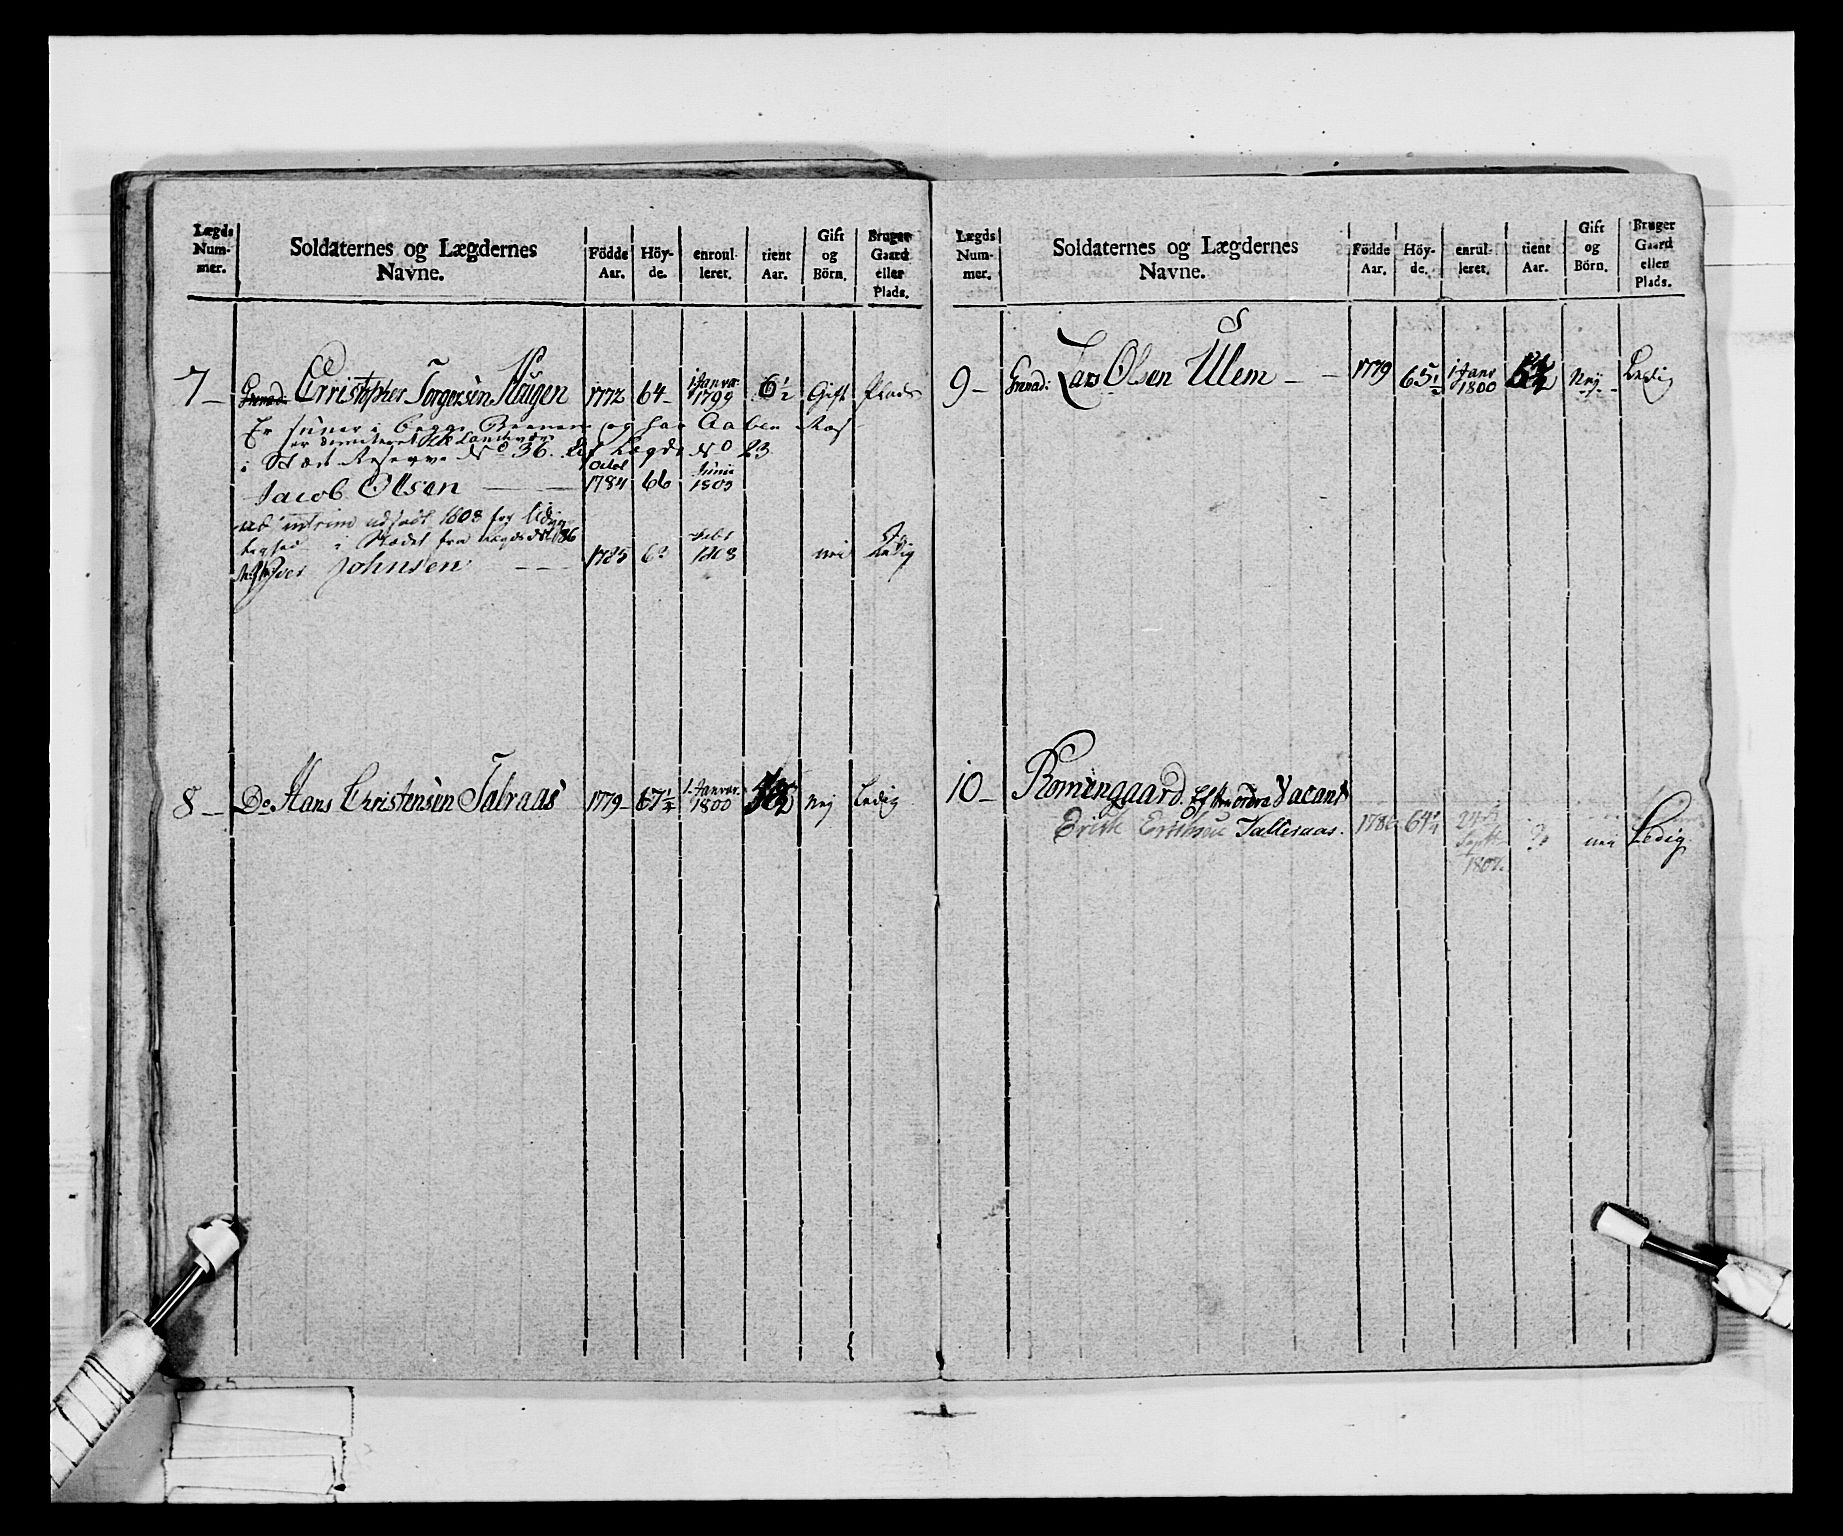 Lægds Num- mer.
Soldaternes og Lægdernes Navne.
Födde Aar.
Höy- de.
enroul- leret.
tient Aar.
Gift og Börn.
Bruger Gaard eller Plads.
7 — Grenad: Christopher Torgersen Haugen 1772 64 — 1 Janvar: 1799 6 1/2 Gift Plads
Er svag i begge Benene og har Aaben
i No 36. Lægd No 23
Jacob Olsen — — 1784 66 Junii 1803
ad intrim udsadt 1808 for
i Stædet fra Lægd No 86
Iver Johnsen — — 1785 Febr 1808 nei Ledig
8 — Do Hans Christensen Talraas 1779 — 67 1/4 1. Janvar. 1800 Nej Ledig
Lægds Num- mer.
Soldaternes og Lægdernes Navne.
Födde Aar.
Höy- de.
enrul- leret.
tient Aar.
Gift og Börn.
Bruger Gaard eller Plads.
9 — Grenad: Lars Olsen Ulem — — 1779 65 1/2 1 Janr 1800 Nej — Ledig
10 — Romengaard. Efter ordre Vacant
Erick Ericksen Talleraas. 1786 64 1/4 24de Septbr 1807. nei Ledig